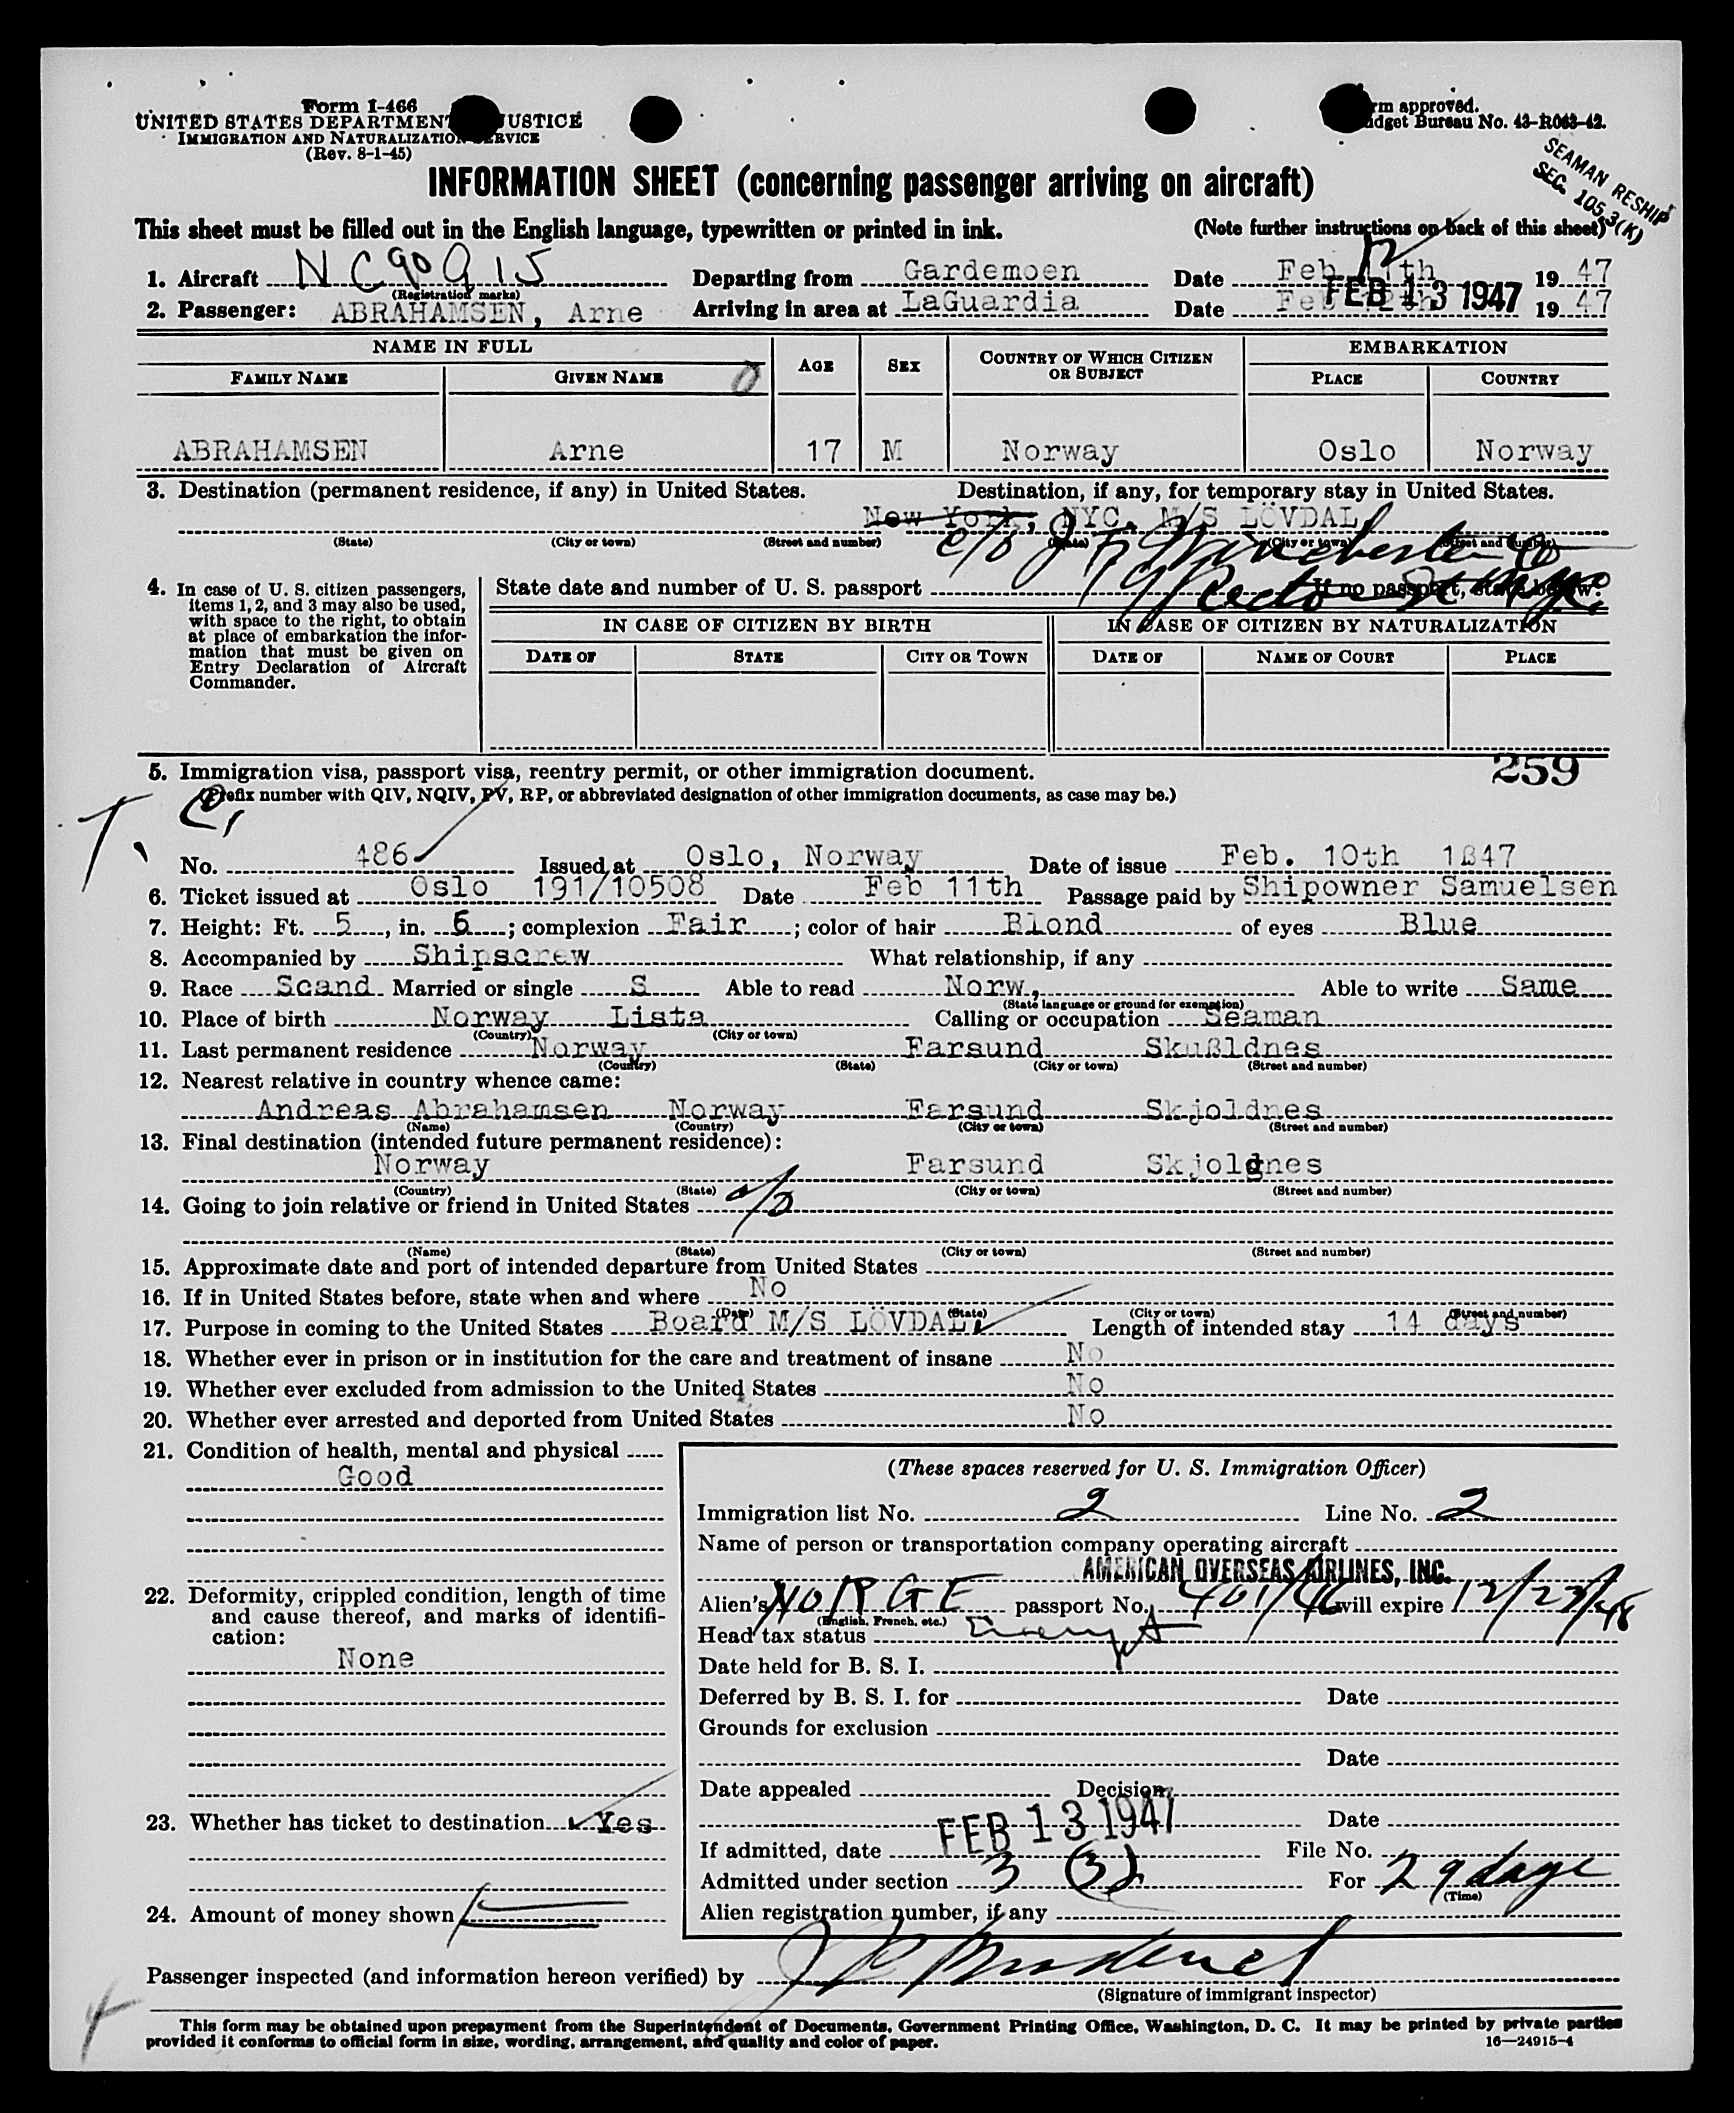 Form I-466
UNITED STATES DEPARTMENT JUSTICE
IMMIGRATION AND NATURALIZATION SERVICE
(Rev. 8-1-45)
rm approved.
dget Bureau No. 43-R063-42.
SEAMAN RESHIP
SEC. 105.3(K)
INFORMATION SHEET (concerning passenger arriving on aircraft)
This sheet must be filled out in the English language, typewritten or printed in ink. (Note further instructions on back of this sheet)
1. Aircraft NC90915 Departing from Gardemoen Date Feb 11th 1947
(Registration marks)
2. Passenger: ABRAHAMSEN, Arne Arriving in area at LaGuardia Date Feb 12th 1947
FEB 13 1947
NAME IN FULL AGE SEX COUNTRY OF WHICH CITIZEN OR SUBJECT EMBARKATION
FAMILY NAME GIVEN NAME PLACE COUNTRY
ABRAHAMSEN Arne 17 M Norway Oslo Norway
3. Destination (permanent residence, if any) in United States. Destination, if any, for temporary stay in United States.
New York, NYC. M/S LÖVDAL
(State) (City or town) (Street and number) (State) (City or town) (Street and number)
c/o J F Winchester Co
19 Rector St NYC
4. In case of U. S. citizen passengers, items 1, 2, and 3 may also be used, with space to the right, to obtain at place of embarkation the information that must be given on Entry Declaration of Aircraft Commander.
State date and number of U. S. passport If no passport, state below:
IN CASE OF CITIZEN BY BIRTH IN CASE OF CITIZEN BY NATURALIZATION
DATE OF STATE CITY OR TOWN DATE OF NAME OF COURT PLACE
259
5. Immigration visa, passport visa, reentry permit, or other immigration document.
(Prefix number with QIV, NQIV, PV, RP, or abbreviated designation of other immigration documents, as case may be.)
No. 486 Issued at Oslo, Norway Date of issue Feb. 10th 1847
6. Ticket issued at Oslo 191/10508 Date Feb 11th Passage paid by Shipowner Samuelsen
7. Height: Ft. 5, in. 6; complexion Fair; color of hair Blond of eyes Blue
8. Accompanied by Shipscrew What relationship, if any
9. Race Scand Married or single S Able to read Norw, Able to write Same
(State language or ground for exemption)
10. Place of birth Norway Lista Calling or occupation Seaman
(Country) (City or town)
11. Last permanent residence Norway Farsund Skußldnes
(Country) (State) (City or town) (Street and number)
12. Nearest relative in country whence came:
Andreas Abrahamsen Norway Farsund Skjoldnes
(Name) (Country) (City or town) (Street and number)
13. Final destination (intended future permanent residence):
Norway Farsund Skjoldnes
(Country) (State) (City or town) (Street and number)
14. Going to join relative or friend in United States
(Name) (State) (City or town) (Street and number)
15. Approximate date and port of intended departure from United States
16. If in United States before, state when and where No
(Date) (State) (City or town) (Street and number)
17. Purpose in coming to the United States Board M/S LÖVDAL. Length of intended stay 14 days
18. Whether ever in prison or in institution for the care and treatment of insane No
19. Whether ever excluded from admission to the United States No
20. Whether ever arrested and deported from United States No
21. Condition of health, mental and physical
Good
22. Deformity, crippled condition, length of time and cause thereof, and marks of identification:
None
23. Whether has ticket to destination Yes
24. Amount of money shown
(These spaces reserved for U. S. Immigration Officer)
Immigration list No. 2 Line No. 2
Name of person or transportation company operating aircraft
AMERICAN OVERSEAS AIRLINES, INC.
Alien's NORGE passport No. 401/46 will expire 12/23/48
(English, French, etc.)
Head tax status Exempt
Date held for B. S. I.
Deferred by B. S. I. for Date
Grounds for exclusion
Date
Date appealed Decision
Date
If admitted, date FEB 13 1947 File No.
Admitted under section 3 (3) For 29 days
(Time)
Alien registration number, if any
Passenger inspected (and information hereon verified) by
(Signature of immigrant inspector)
This form may be obtained upon prepayment from the Superintendent of Documents, Government Printing Office, Washington, D. C. It may be printed by private parties
provided it conforms to official form in size, wording, arrangement, and quality and color of paper. 16—24915-4